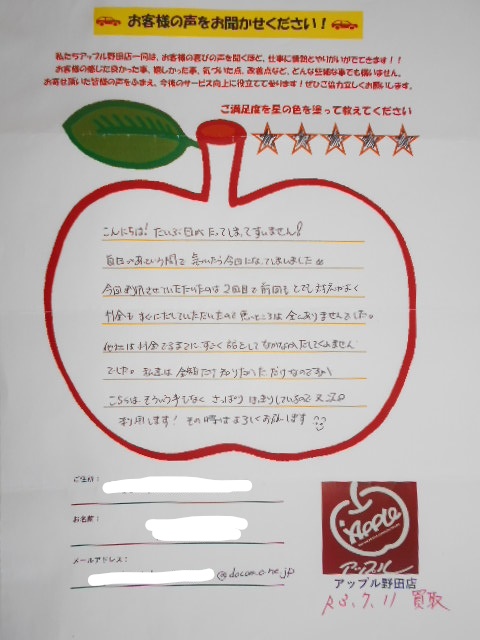 お客様の声をお聞かせください!
私たちアップル野田店一同は、お客様の喜びの声を聞くほど、仕事に情熱とやりがいがでてきます!!
お客様の感じた良かった事、嬉しかった事、気づいた点、改善点など、どんな些細な事でも構いません。
お寄せ頂いた皆様の声をふまえ、今後のサービス向上に役立てて参ります!ぜひご協力宜しくお願いします。
ご満足度を星の色を塗って教えてください
こんにちは! だいぶ日がたってしまってすいません!
毎日あっという間で 気づいたら今日になってしまいました
今回お願いさせていただいたのは2回目で前回もとても対応がよく
料金もすぐにだしていただいたので悪いところは全くありませんでした。
他には料金でるまでにすごく
でした。私達は金額だけ知りたいだけなのですが
こちらはそういう事なく さっぱり はっきりしているので 又次回
利用します! その時はよろしくお願いします
ご住所:
お名前:
メールアドレス:
@docomo.ne.jp
Apple
アップル
アップル野田店
R3.7.11 買取